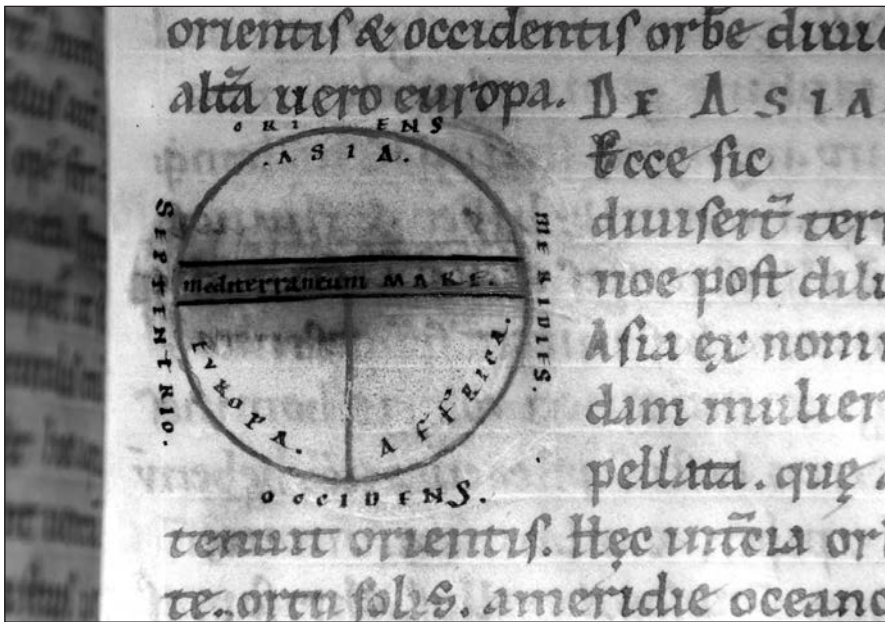 orientiſ & occidentiſ orbē diui
altā uero europa. DE ASIA
ORIENS
.ASIA.
SEPTINTRIO.
MERIDIES.
mediterraneum MARE.
EVROPA.
AFFRICA.
OCCIDENS.
Ecce ſic
diuiſert̄ terr
noe poſt dilu
Aſia ex nomi
dam mulier
pellata. quę
tenuit orientiſ. Hęc
te. ortu ſoliS. ameridie oceano